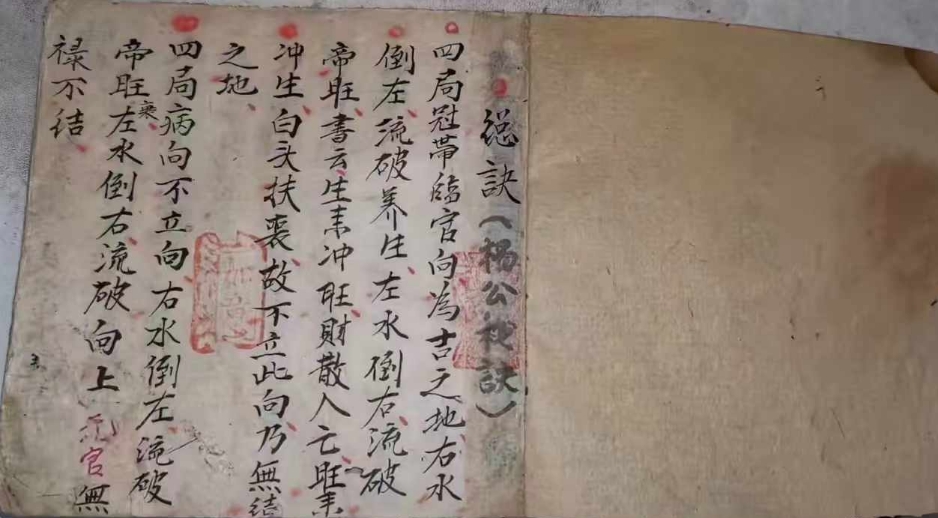 總訣（楊公秘訣）
四局冠帶臨官向為吉之地右水
倒左流破养生左水倒右流破
帝旺書云生耒冲旺財散人亡旺耒
冲生白头扶丧故不立此向乃無结
之地
四局病向不立向右水倒左流破
帝旺衰左水倒右流破向上官無
禄不结